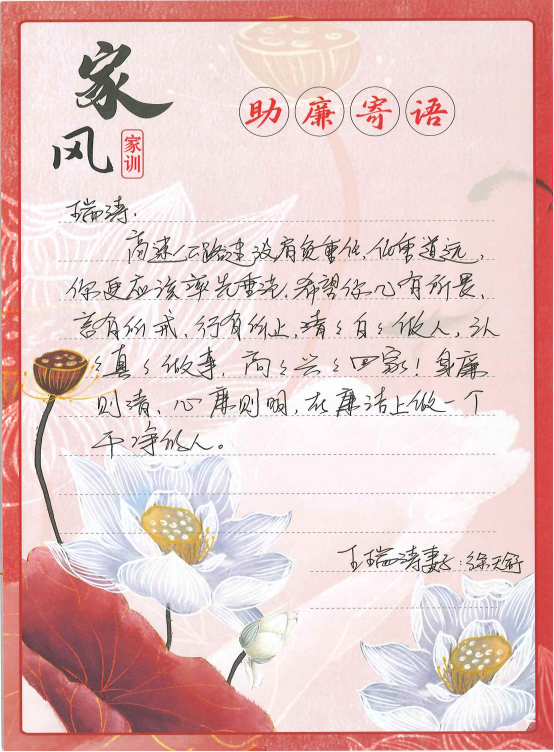 家风
家训
助廉寄语
瑞涛,
高速公路建设肩负重任,任重道远,
你更应该率先垂范,希望你心有所畏、
言有所戒、行有所止,清々白々做人,认
々真々做事,高々兴々回家!身廉
则清、心廉则明,在廉洁上做一个
干净的人。
王瑞涛妻子:徐